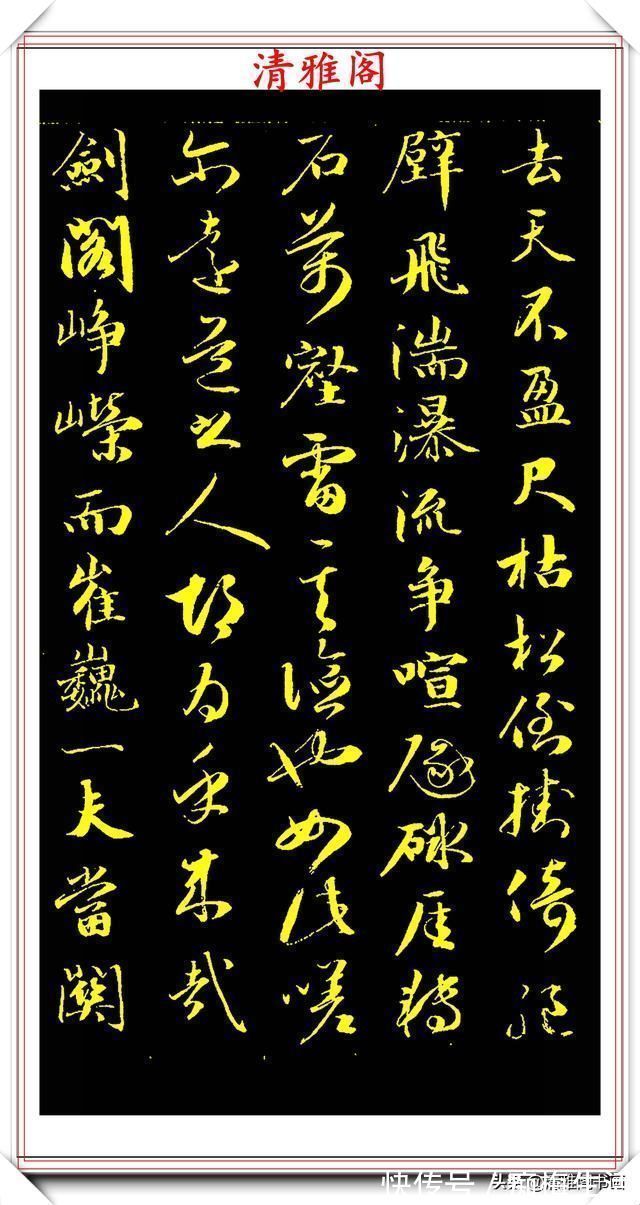 清雅阁
去天不盈尺枯松倒挂倚絕
壁飛湍瀑流争喧豗砯厓轉
石萬壑雷其險也如此嗟
尔遠道之人胡為乎來哉
劍閣峥嶸而崔巍一夫當關
快传号